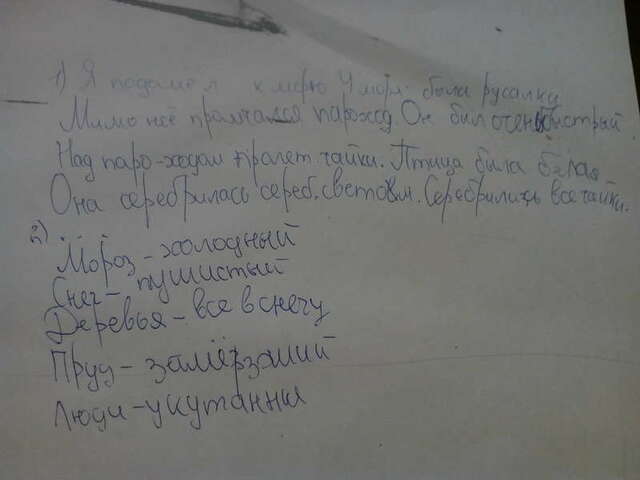 1) Я подошёл к морю У моря была русалку
Мимо неё промчался пароход. Он бил очень быстрый.
Над паро-ходам пролет чайки. Птица била белая
Она серебрилась сереб. светом. Серебрились все чайки.
2)
Мороз - холодный
Снег - пушистый
Деревья - все в снегу
Пруд - замёрзший
Люди - укутанны